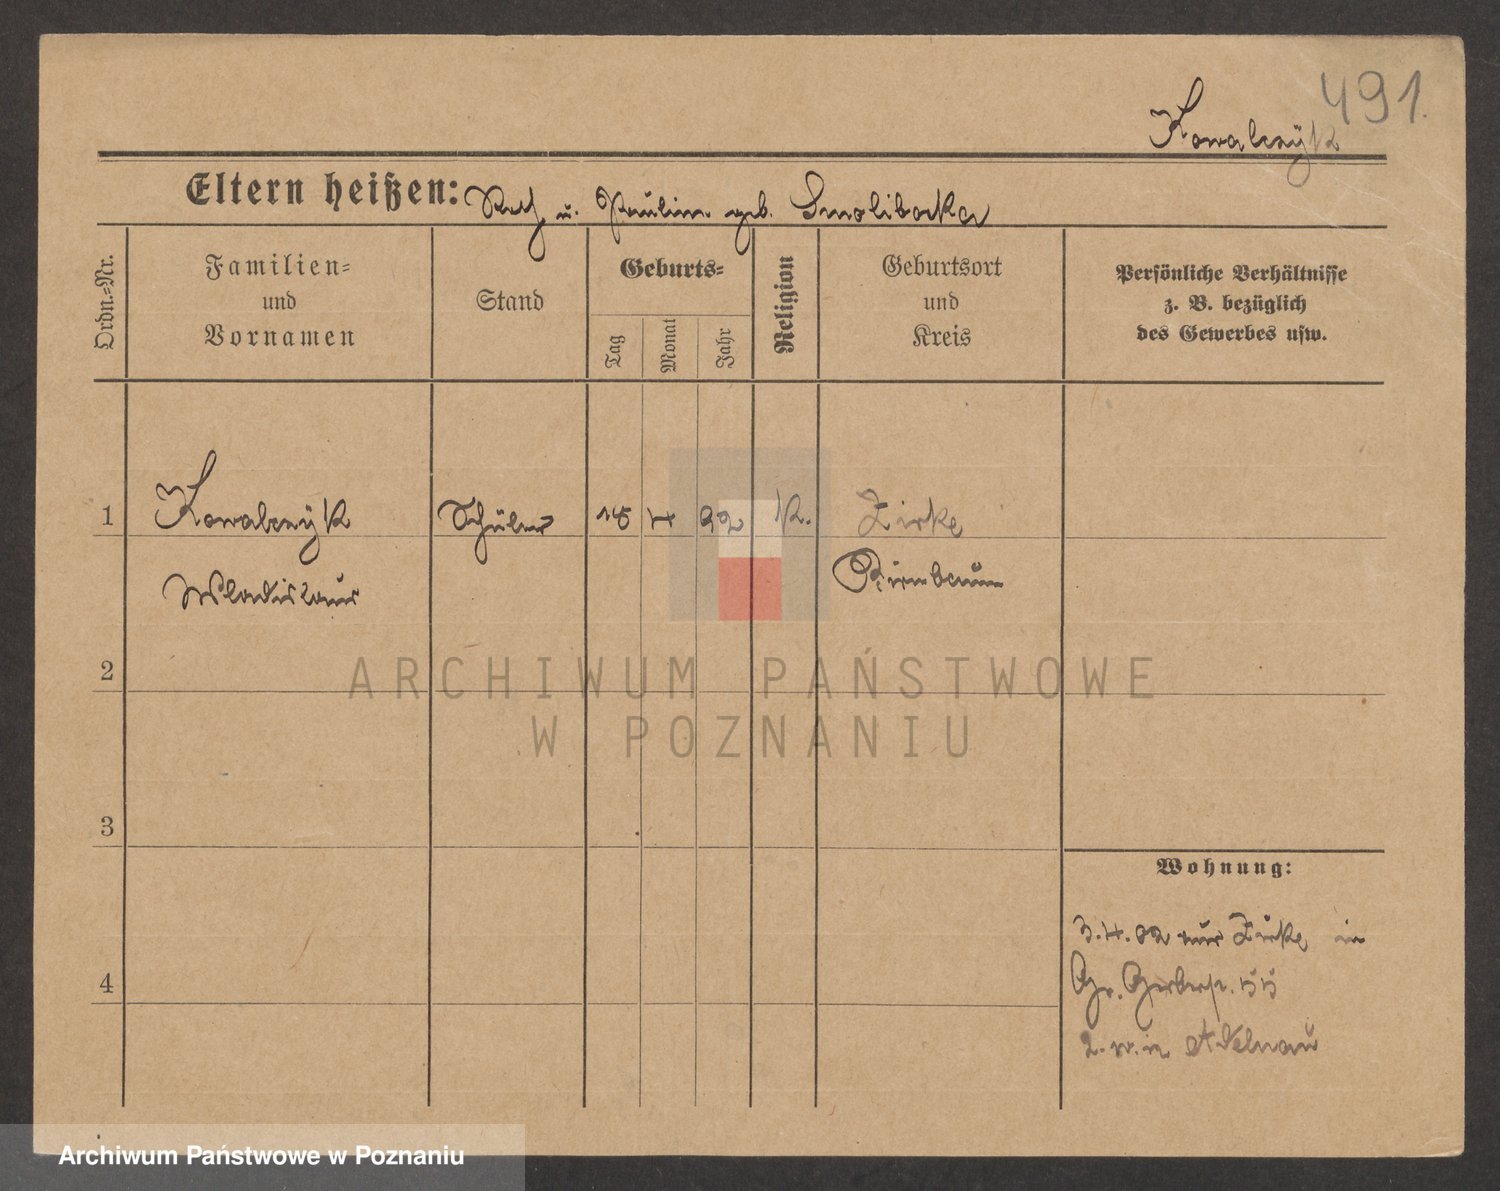 491.
Kowalczÿk
Eltern heißen: u. Paulin. geb. Smolibocka
Ordn.=Nr.
Familien=
und
Vornamen
Stand
Geburts=
Tag
Monat
Jahr
Religion
Geburtsort
und
Kreis
Persönliche Verhältnisse
z. B. bezüglich
des Gewerbes usw.
1 Kowalczÿk Schüler 18 4 92 K. Zirke
Wladislaus Birnbaum
2
3
4
Wohnung:
3.4.02 aus Zirke in
Gr. Gerberstr. 55
2. w. in Adelnau
ARCHIWUM PAŃSTWOWE
W POZNANIU
Archiwum Państwowe w Poznaniu